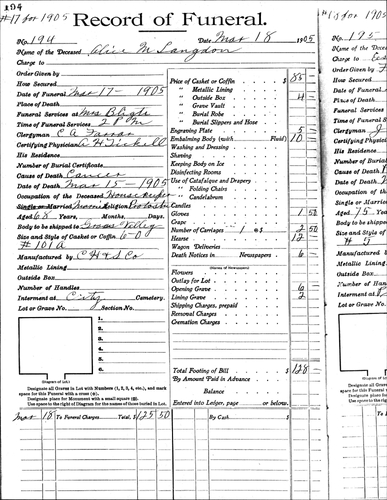 194
#17 for 1905
Record of Funeral.
No. 194 Date, Mar 18 1905
Name of the Deceased Alice M Langdon
Charge to
Order Given by
How Secured
Date of Funeral Mar 17 - 1905
Place of Death
Funeral Services at Mrs Blight
Time of Funeral Services 2 P.M.
Clergyman C A Farrar
Certifying Physician A H Tickell
His Residence,
Number of Burial Certificate
Cause of Death Cancer
Date of Death Mar 15 - 1905
Occupation of the Deceased Housekeeper
Single or Married Religion
Aged 68 Years, Months, Days.
Body to be shipped to Grass Valley
Size and Style of Casket or Coffin, 6-0
#101A
Manufactured by C H & S Co
Metallic Lining
Outside Box
Number of Handles
Interment at City Cemetery.
Lot or Grave No. Section No.
1.
2.
3.
4.
5.
6.
(Diagram of Lot.)
Designate all Graves in Lot with Numbers (1, 2, 3, 4, etc.), and mark
space for this Funeral with a cross
Designate place for Monument with a small square
Use space to the right of Diagram for the names of those buried in Lot.
Price of Casket or Coffin $ 85 -
" Metallic Lining
" Outside Box 4
" Grave Vault
" Burial Robe
" Burial Slippers and Hose
Engraving Plate 5 -
Embalming Body (with Fluid) 10 -
Washing and Dressing
Shaving
Keeping Body on Ice
Disinfecting Rooms
Use of Catafalque and Drapery
" Folding Chairs
" Candelabrum
Candles
Gloves 1 50
Gape
Number of Carriages 1 @ $ 2 50
Hearse 12
Wagon Deliveries
Death Notices in Newspapers 6 -
(Names of Newspapers)
Flowers
Outlay for Lot
Opening Grave 6
Lining Grave 2
Shipping Charges, prepaid
Personal Charges
Cremation Charges
Total Footing of Bill $ 128 -
By Amount Paid in Advance
Balance
Entered into Ledger, page or below.
Mar 18 To Funeral Charges Total, $ 125 50 By Cash $
#18 for 1905
No. 195
Name of the
Charge to
Order Given
How Secured
Date of Funeral
Place of Death
Funeral Services
Time of Funeral
Clergyman
Certifying Physician
His Residence,
Number of Burial
Cause of Death
Date of Death
Occupation of
Single or Married
Aged 75 Years
Body to be shipped
Size and Style
Manufactured
Metallic Lining
Outside Box
Number of Handles
Interment at
Lot or Grave No.
Designate all
space for this Funeral
Designate place
Use space to the